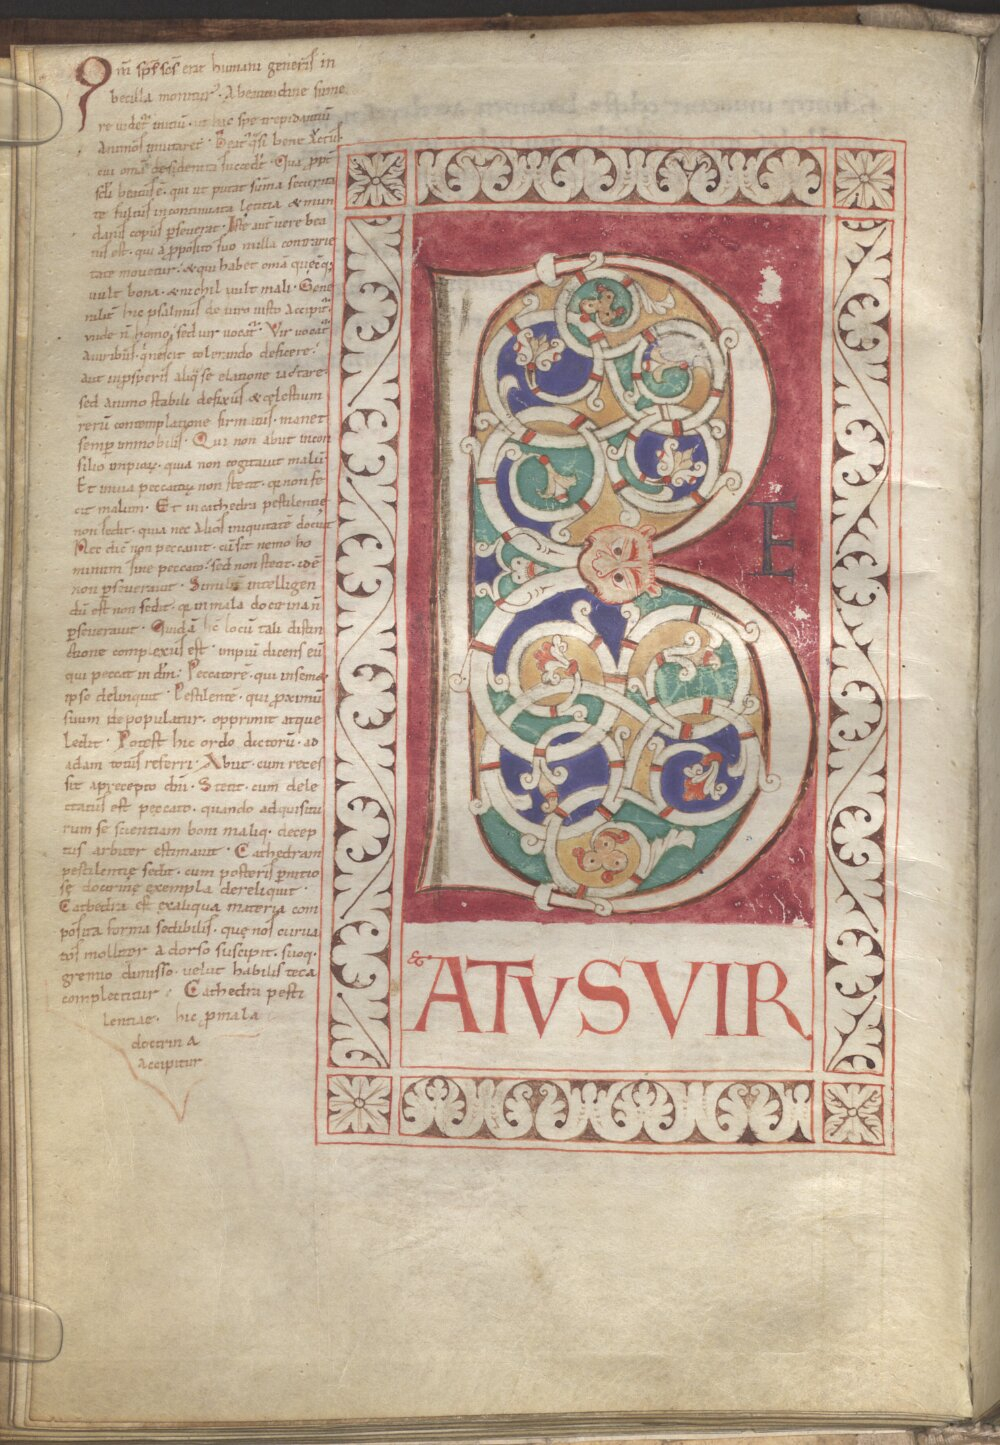 Qm̄ sp̄s sc̄s erat humani generis in
becilla monitur. A beatitudine sume
re uidet̄ initiū. ut hac spe trepidantiū
animos inuitaret.
cui om̄a desiderata succedt̄.
qui ut putat sum̄a securita
te fultus in continuata letitia & mun
danis copiis p̄seuerat. Iste aut̄ uere bea
tus est. qui a p̄posito suo nulla contrarie
tate mouetur. & qui habet om̄a quecq;
uult bona. & nichil uult mali. Gene
ralit̄ hic psalmus de uiro iusto accipit̄.
unde n̄ homo, sed uir uocat̄. Vir uocat̄
a uiribus. q̄ nescit tolerando deficere.
aut in psperis aliq̄ se elatione iactare.
sed animo stabili defixus & cęlestium
rerū contemplatione firmatus. manet
semp immobilis. Qui non abiit in con
silio impioꝝ. quia non cogitauit malū.
Et in uia peccatoꝝ non stetit. q̄ non fe
cit malum. Et in cathedra pestilentię
non sedit. quia nec alios iniquitatē docuit
Nec dic̄ non peccauit. cū sit nemo ho
minum sine peccato. sed non stetit. id ē
non p̄seuerauit. Similit̄ intelligen
dū est non sedit. q̄ in mala doctrina n̄
p̄seuerauit. Quidā hc̄ locū tali distin
ctione complexus est. impiū dicens eū
qui peccat in dm̄. Peccatorē. qui in seme
ipso delinquit. Pestilentē. qui pximū
suum depopulatur. opprimit atque
ledit. Potest hic ordo dictorū. ad
adam totus referri. Abiit. cum reces
sit a precepto dn̄i. Stetit. cum dele
ctatus est peccato. quando adquisitu
rum se scientiam boni maliq. decep
tus arbiter estimauit. Cathedram
pestilentię sedit. cum posteris p̄nitio
sę doctrinę exempla dereliquit.
Cathedra est ex aliqua materia com
posita forma sedibilis. que nos curua
tos molliter a dorso suscipit. suoq.
gremio dimisso. uelut habilis teca
complectitur. Cathedra pesti
lentiae. hic p mala
doctrina
accipitur
B
E
& ATVS VIR